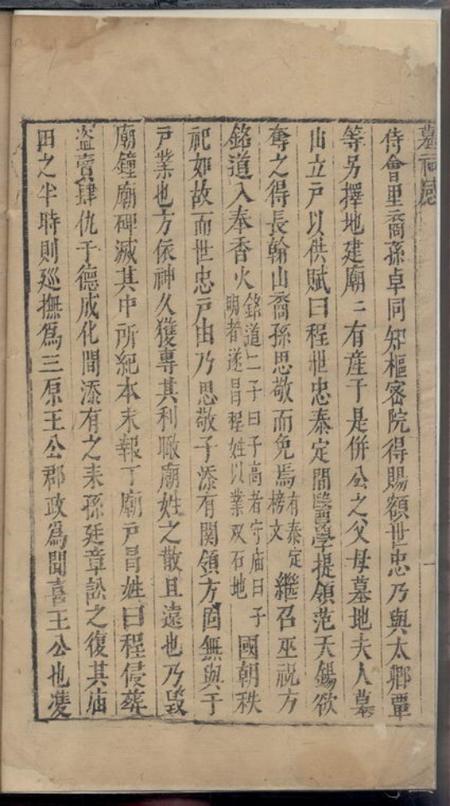 墓祠感
侍會里裔孫卓同知樞密院得賜額世忠乃與太卿覃
等另擇地建廟二有產于是併公之父母墓地夫人墓
山立戶以供賦曰程世忠泰定間醫學提領范天錫欲
奪之得長翰山裔孫思敬而免焉有泰定榜文繼召巫祝方
銘道入奉香火銘道二子曰子高者守庙曰子明者遂冒程姓以業双石地國朝秩
祀如故而世忠戶由乃思敬子添有關領方固無與于
戶業也方依神久獲專其利瞰廟姓之散且遠也乃毀
廟鐘廟碑滅其中所紀本末報丁廟戶冒姓曰程侵葬
盜賣肆仇于德成化間添有之耒孫廷章訟之復其庙
田之半時則廵撫為三原王公郡政為聞喜王公也濩